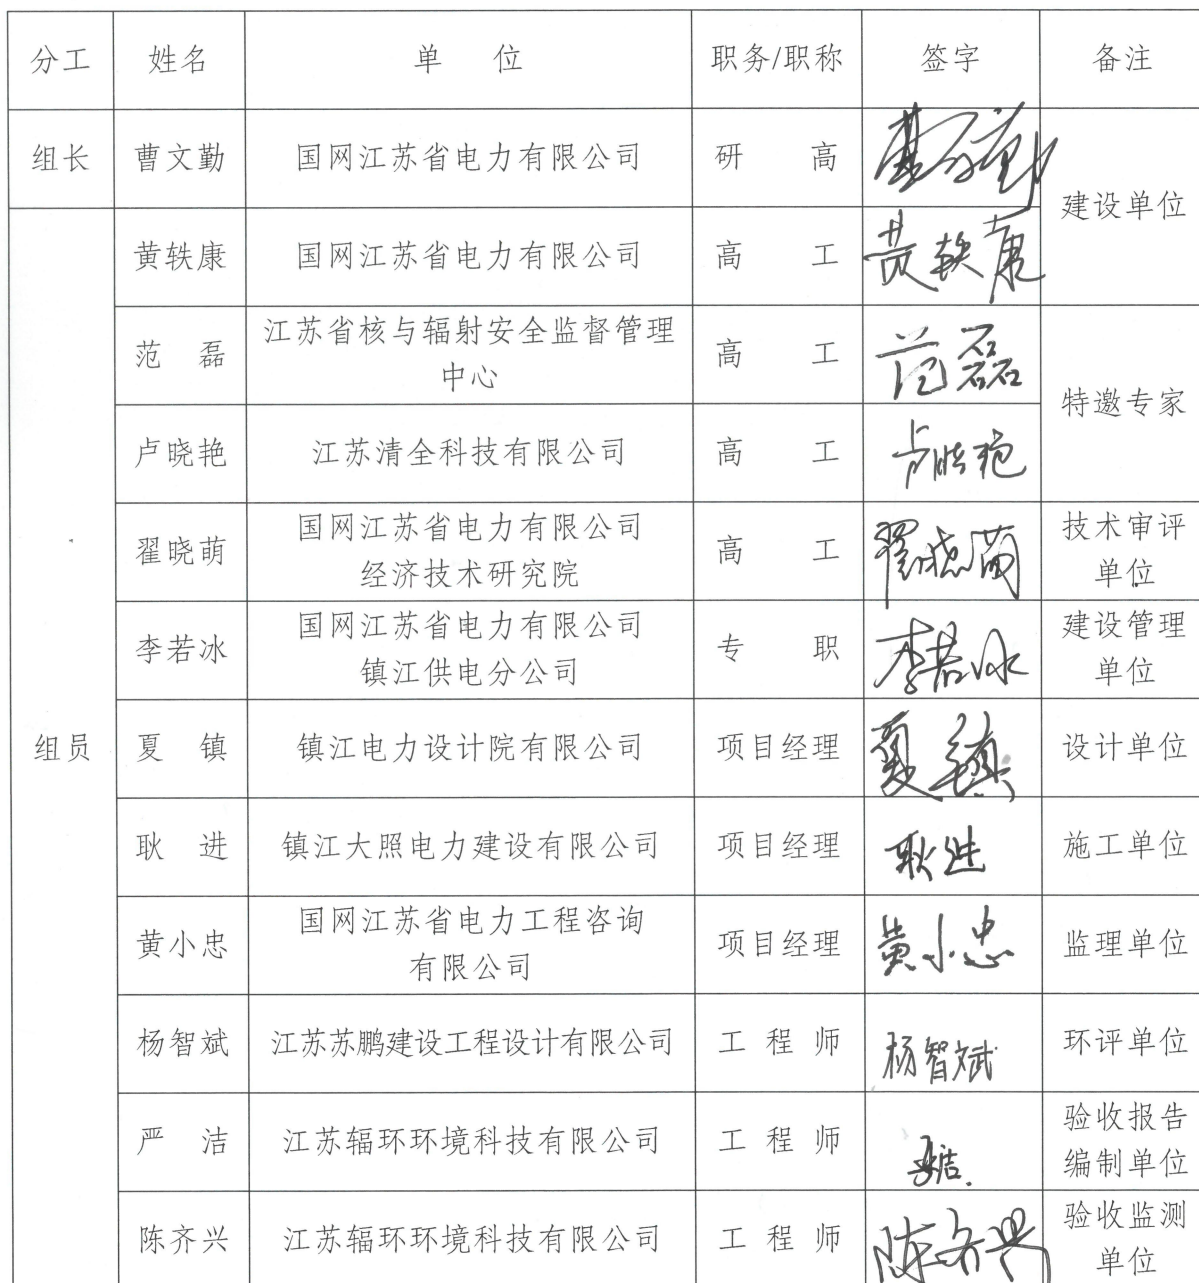 分工 姓名 单 位 职务/职称 签字 备注
组长 曹文勤 国网江苏省电力有限公司 研 高 曹文勤
建设单位
黄轶康 国网江苏省电力有限公司 高 工 黄轶康
范 磊 江苏省核与辐射安全监督管理
中心 高 工 范磊
特邀专家
卢晓艳 江苏清全科技有限公司 高 工 卢晓艳
翟晓萌 国网江苏省电力有限公司
经济技术研究院 高 工 翟晓萌 技术审评
单位
李若冰 国网江苏省电力有限公司
镇江供电分公司 专 职 李若冰 建设管理
单位
组员 夏 镇 镇江电力设计院有限公司 项目经理 夏镇 设计单位
耿 进 镇江大照电力建设有限公司 项目经理 耿进 施工单位
黄小忠 国网江苏省电力工程咨询
有限公司 项目经理 黄小忠 监理单位
杨智斌 江苏苏鹏建设工程设计有限公司 工 程 师 杨智斌 环评单位
严 洁 江苏辐环环境科技有限公司 工 程 师 严洁 验收报告
编制单位
陈齐兴 江苏辐环环境科技有限公司 工 程 师 陈齐兴 验收监测
单位